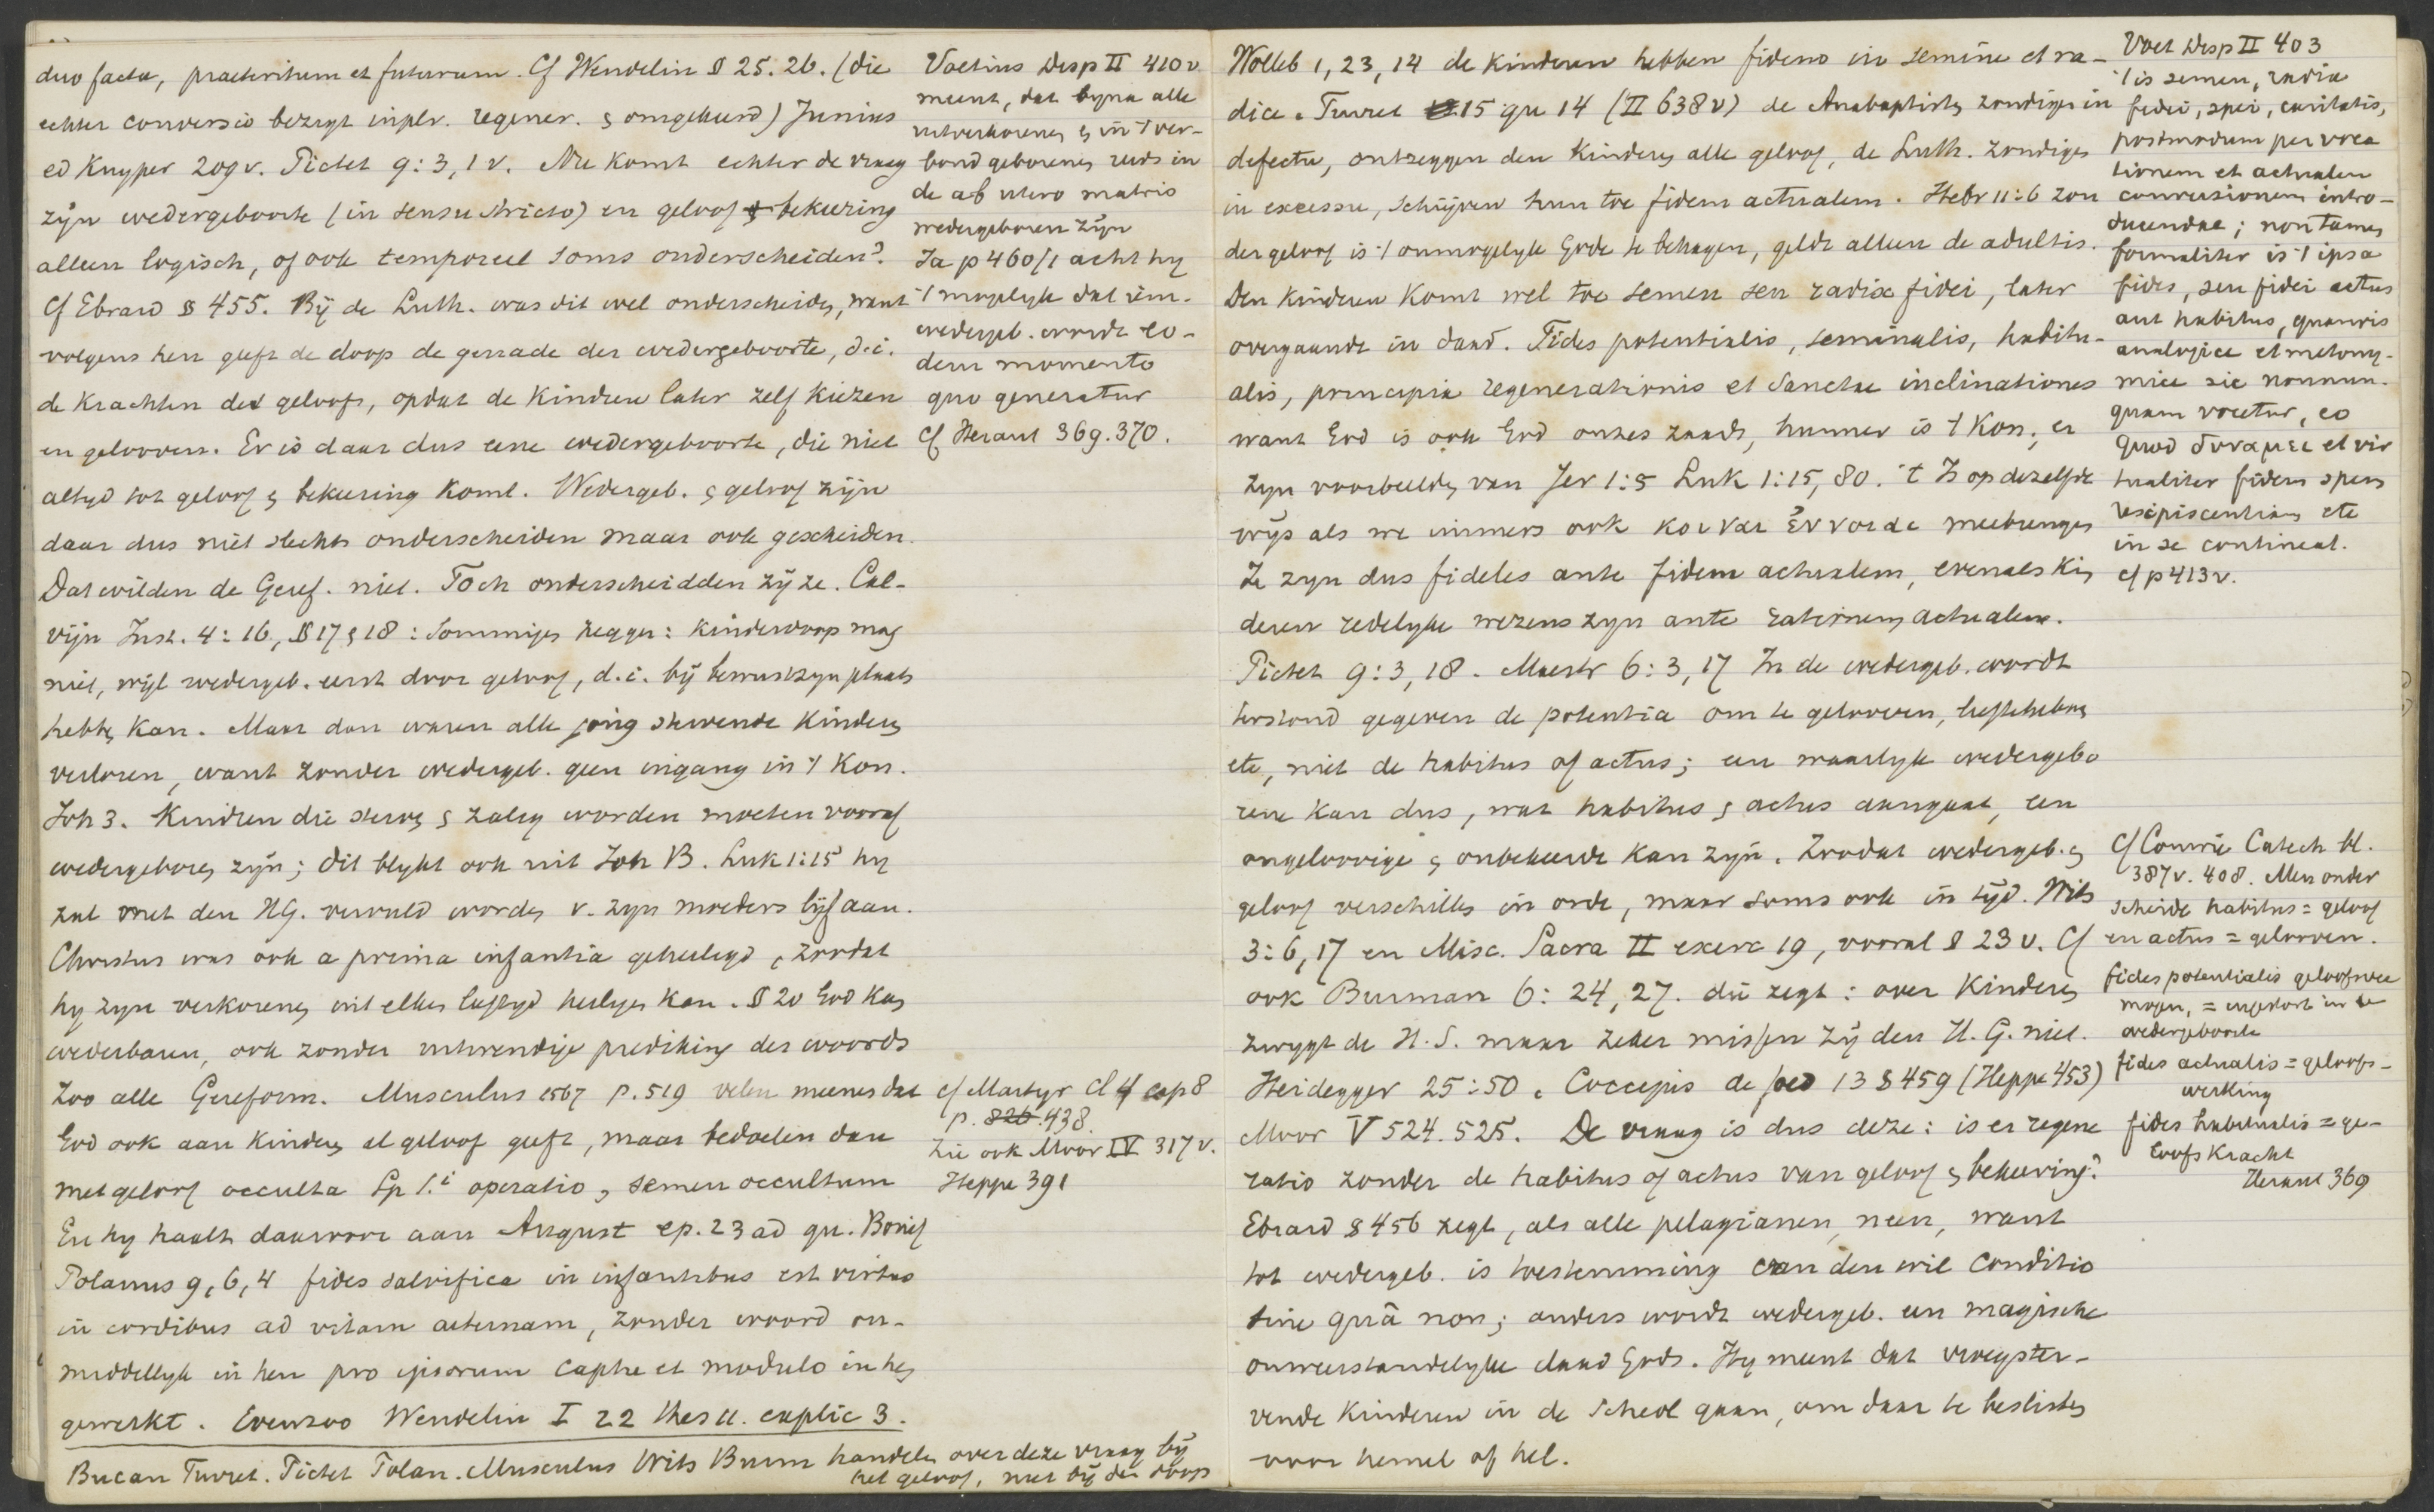 duo facta, praeteritum et futurum. Cf Wendelin § 25. 26. (die
echter conversio bezigt inplv. regener. & omgekeerd) Junius
ed Kuyper 209v. Pictet 9:3,1v. Nu komt echter de vraag
zijn wedergeboorte (in sensu stricto) en geloof & bekeering
alleen logisch, of ook temporeel soms onderscheiden?
Cf Ebrard § 455. Bij de Luth. was dit wel onderscheiden, want
volgens hen geeft de doop de genade der wedergeboorte, d.i.
de krachten des geloofs, opdat de kinderen later zelf kiezen
en gelooven. Er is daar dus eene wedergeboorte, die niet
altyd tot geloof & bekeering komt. Wedergeb. & geloof zijn
daar dus niet slechts onderscheiden maar ook gescheiden.
Dat wilden de Geref. niet. Toch onderscheidden zij ze. Cal-
vijn Inst. 4:16, § 17 & 18: Sommigen zeggen: kinderdoop mag
niet, wijl wedergeb. eerst door geloof, d.i. bij bewustzyn plaats
hebben kan. Maar dan waren alle jong stervende kinderen
verloren, want zonder wedergeb. geen ingang in 't Kon.
Joh 3. Kinderen die sterven & zalig worden moeten vooraf
wedergeboren zijn; dit blykt ook uit Joh B. Luk 1:15 hy
zal met den HG. vervuld worden v. zyn moeders lijf aan.
Christus was ook a prima infantia geheiligd, zoodat
hy zyn verkorenen uit elken leeftyd heiligen kan. § 20 God kan
wederbaren, ook zonder uitwendige prediking des woords
Zoo alle Gereform. Musculus 1567 p. 519 velen meenen dat
God ook aan kinderen al geloof geeft, maar bedoelen dan
met geloof occulta Sp s.i operatio, semen occultum
En hy haalt daarvoor aan August ep. 23 ad qu. Bonif
Polanus 9,6,4 fides salvifica in infantibus est virtus
in cordibus ad vitam aeternam, zonder woord on-
middellyk in hen pro ipsorum captu et modulo in hen
gewerkt. Evenzoo Wendelin I 22 thes 11. explic 3.
Bucan Turret. Pictet Polan. Musculus Wits Burm handelen over deze vraag bij
het geloof, niet bij den doop
Voetius Disp II 410v
meent, dat byna alle
uitverkorenen & in 't ver-
bond geborenen reeds in
de ab utero matris
wedergeboren zijn
Ja p 460/1 acht hy
't mogelyk dat iem.
wedergeb. wordt eo-
dem momento
quo generatur
Cf Heraut 369. 370.
cf Martyr Cl 4 cap 8
p. 826. 438.
Zie ook Moor IV 317v.
Heppe 391
Wolleb 1, 23, 14 de kinderen hebben fidem in semine et ra-
dice. Turret 15 qu 14 (II 638v) de Anabaptisten zondigen in
defectu, ontzeggen den kinderen alle geloof, de Luth. zondigen
in excessu, schrijven hun toe fidem actualem. Hebr 11:6 zon
der geloof is 't onmogelyk Gode te behagen, geldt alleen de adultis.
Den kinderen komt wel toe semen seu radix fidei, later
overgaande in daad. Fides potentialis, seminalis, habitu-
alis, principia regenerationis et sanctae inclinationes
want God is ook God onzes zaads, hunner is 't Kon., er
zyn voorbeelden van Jer 1:5 Luk 1:15, 80. 't Is op dezelfde
wijs als we immers ook κοιναι ἐννοιαι meebrengen
Ze zyn dus fideles ante fidem actualem, evenals kin
deren redelyke wezens zyn ante rationem actualem.
Pictet 9:3, 18. Maestr 6:3, 17 In de wedergeb. wordt
terstond gegeven de potentia om te gelooven, liefhebben
etc, niet de habitus of actus; een waarlyk wedergebo
rene kan dus, wat habitus & actus aangaat, een
ongeloovige & onbekeerde kan zijn. Zoodat wedergeb. &
geloof verschillen in orde, maar soms ook in tijd. Wits
3:6, 17 en Misc. Sacra II exerc 19, vooral § 23v. Cf
ook Burman 6:24, 27. die zegt: over kinderen
zwygt de H.S. maar zeker missen zij den H.G. niet.
Heidegger 25:50. Coccejus de foed 13 § 459 (Heppe 453)
Moor V 524. 525. De vraag is dus deze: is er regene
ratio zonder de habitus of actus van geloof & bekeering?
Ebrard § 456 zegt, als alle pelagianen, neen, want
tot wedergeb. is toestemming van den wil conditio
sine quâ non; anders wordt wedergeb. een magische
onweerstandelyke daad Gods. Hy meent dat vroegster-
vende kinderen in de Scheol gaan, om daar te beslissen
voor hemel of hel.
Voet Disp II 403
't is semen, radix
fidei, spei, caritatis,
postmodum per voca
tionem et actualem
conversionem intro-
ducendae; non tamen
formaliter is 't ipsa
fides, seu fidei actus
aut habitus, quamvis
analogice et metony-
mice sic nonnun-
quam vocetur, eo
quod δυναμει et vir
tualiter fidem spem
resipiscentiam etc
in se contineat.
cf p 413v.
Cf Comrie Catech bl.
387v. 408. Men onder
scheide habitus = geloof
en actus = gelooven.
fides potentialis geloofsver
mogen, = ingestort in de
wedergeboorte
fides actualis = geloofs-
werking
fides habitualis = ge-
loofskracht
Heraut 369